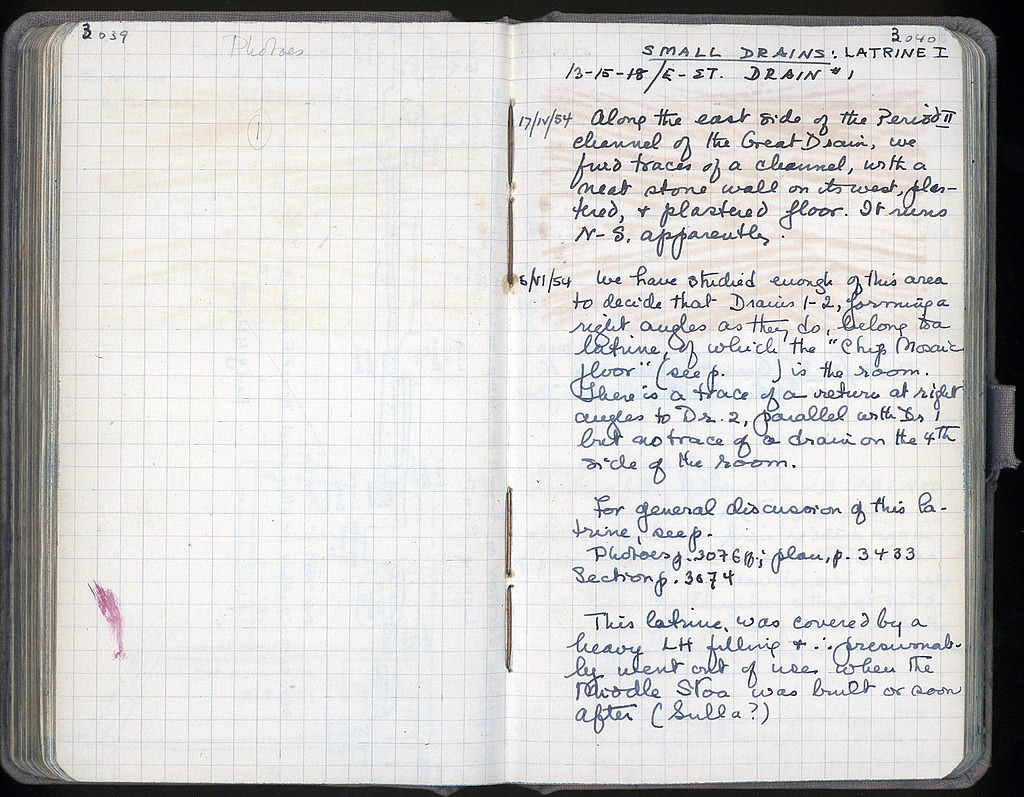 3039
Photoes
1
3040
SMALL DRAINS: LATRINE I
13-15-18/E-ΣT. DRAIN #1
17/IV/54 Along the east side of the Period II
channel of the Great Drain, we
find traces of a channel, with a
neat stone wall on its west, plas-
tered, & plastered floor. It runs
N-S. apparently.
5/VI/54 We have studied enough of this area
to decide that Drains 1-2, forming a
right angles as they do, belong to a
latrine, of which the "Chip Mosaic
floor" (see p. ) is the room.
There is a trace of a return at right
angles to Dr. 2, parallel with Dr 1
but no trace of a drain on the 4th
side of the room.
For general discussion of this la-
trine, see p.
Photoes p. 3076 ; plan, p. 3433
Section p. 3074
This latrine, was covered by a
heavy LH filling & ∴ presumab-
ly went out of use when the
Middle Stoa was built or soon
after (Sulla?)